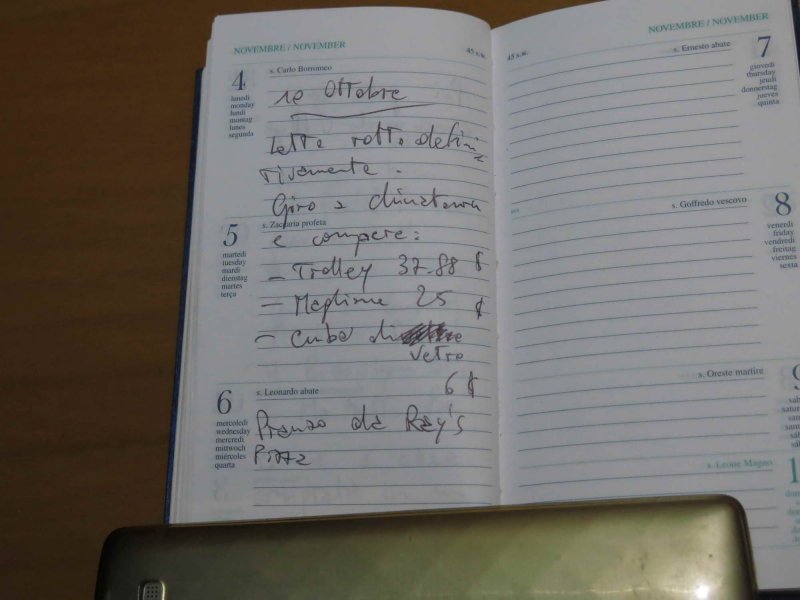 NOVEMBRE / NOVEMBER
45 s.w.
4
lunedì
monday
lundi
montag
lunes
segunda
s. Carlo Borromeo
10 Ottobre
Letto rotto defini
tivamente.
Giro a chinatown
5
martedì
tuesday
mardi
dienstag
martes
terça
s. Zaccaria profeta
e compere:
- Trolley 37.88 $
- Maglione 25 $
- Cubo di
vetro
6 $
6
mercoledì
wednesday
mercredi
mittwoch
miércoles
quarta
s. Leonardo abate
Pranzo da Ray's
Pizza
NOVEMBRE / NOVEMBER
45 s.w.
s. Ernesto abate
7
giovedì
thursday
jeudi
donnerstag
jueves
quinta
s. Goffredo vescovo
8
venerdì
friday
vendredi
freitag
viernes
sexta
s. Oreste martire
9
s. Leone Magno